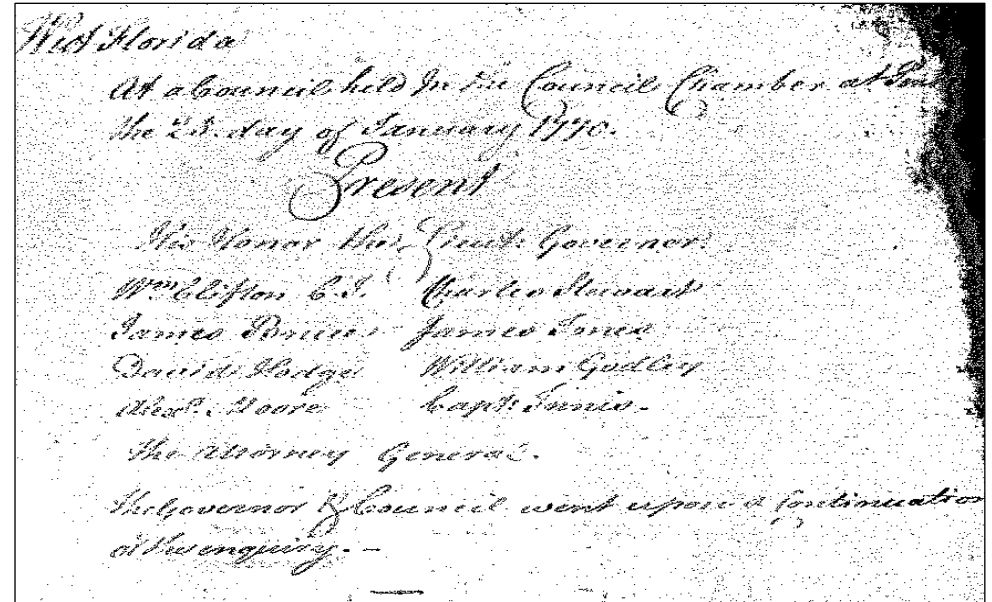 West Florida
At a Council held In the Council Chamber at
the 23. day of January 1770.
Present
His Honor the Lieut: Governor.
Wm Clifton C.J. Charles Stewart
James Bruce James Jones
David Hodge William Godley
Alexr. Moore Capt: Innis.
The Attorney General.
The Governor & Council went upon a Continuation
of the enquiry. —